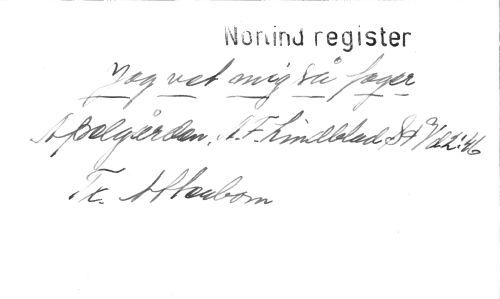 Norlind register
Jag vet mig så fager
Apelgården, A.F. Lindblad, SA V d.2:46
Tx. Atterbom